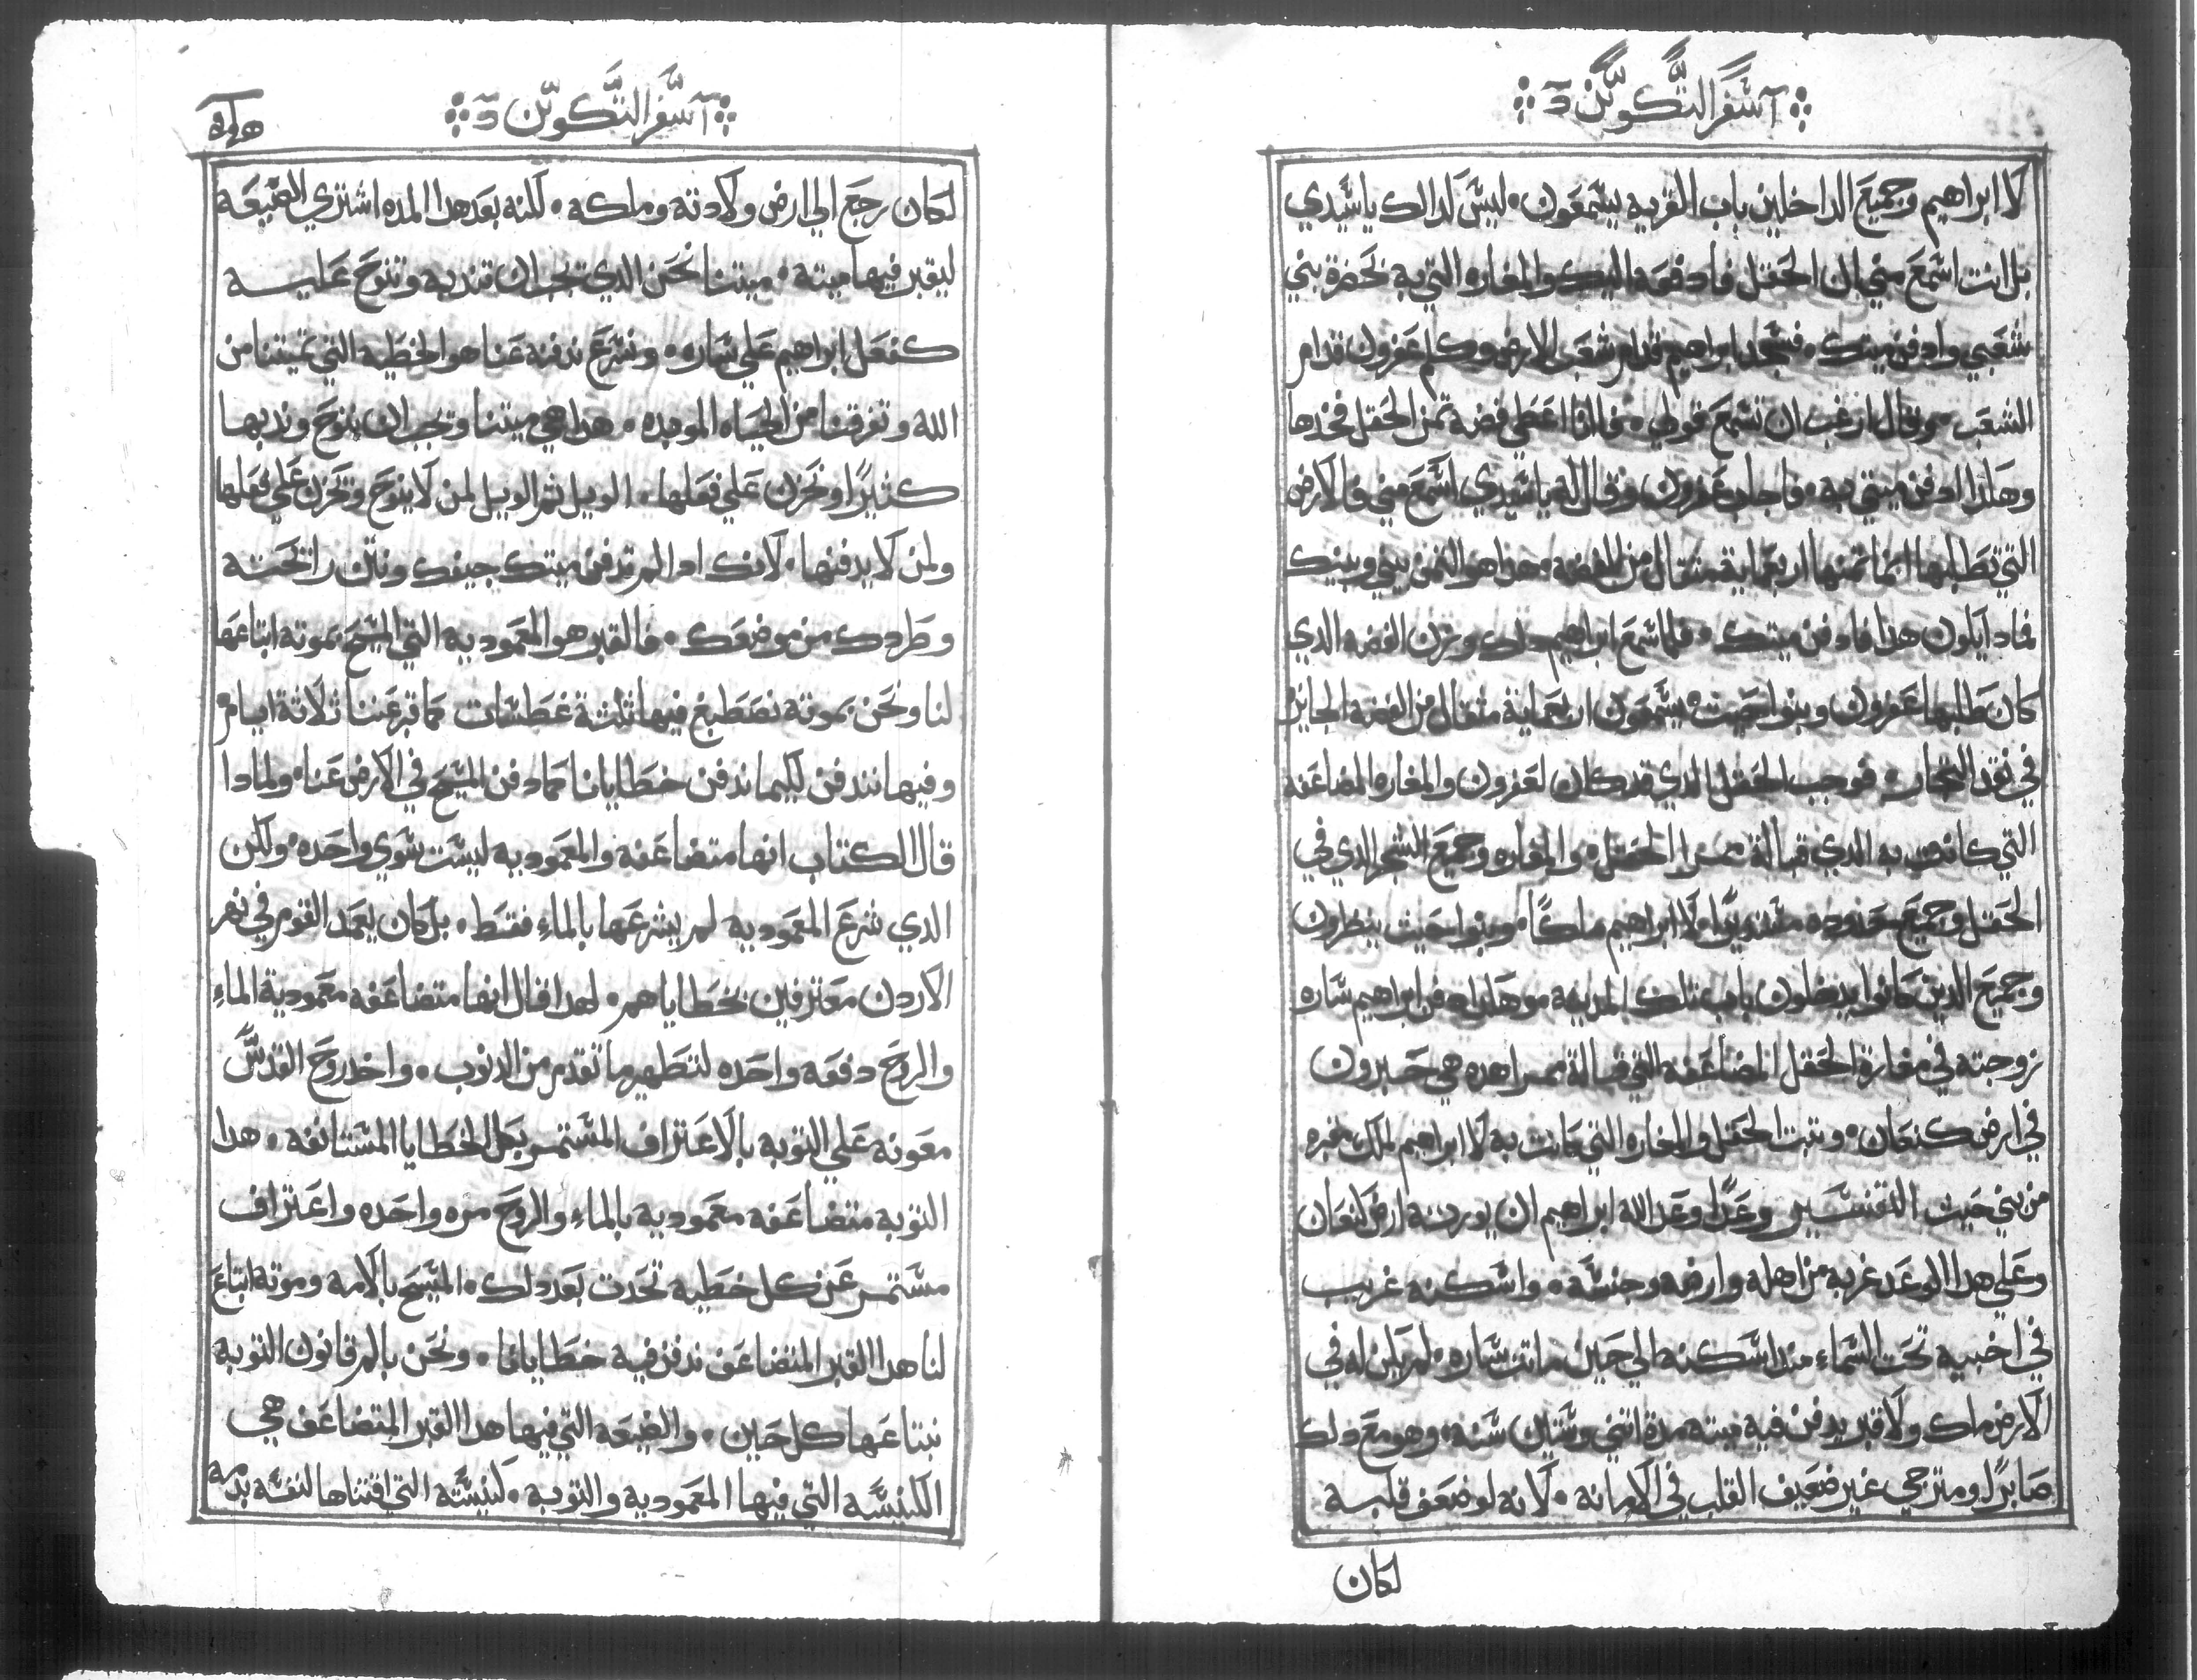 آ سفر التكوين د
لا ابراهيم وجميع الداخلين باب القريه يسمعون. ليس لدالك ياسيدي
بل انت اسمع مني بان الحقل فادفعه اليك والمغاره التي به بحضرة بني
شعبي وادفن ميتك. فسجد ابراهيم قدام شعب الارض وكلم عفرون قدام
الشعب. وقال ارغب ان تسمع قولي. فانا اعطي فضه تمن الحقل فخدها
وهكدا ادفن ميتي به. فاجاب عفرون وقال له ياسيدي اسمع مني فالارض
التي تطلبها انما تمنها اربعماية متقال من الفضه. هدا هو التمن بيني وبينك
فمادا يكون هدا فادفن ميتك. فلما سمع ابراهيم دلك وزن الفضه الدي
كان طلبها عفرون وبنوا حيت يسمعون اربعماية متقال من الفضه الجايز
في نقد التجار. فوجب الحقل الدي قد كان لعفرون والمغاره المضاعفه
التي كانت به الدي قبالة ممرا الحقل. والمغاره وجميع الشجر الدي في
الحقل وجميع حدوده مستديرًا لا ابراهيم ملكًا. وبنوا حيت ينظرون
وجميع الدين كانوا يدخلون باب تلك المدينه وهكدا دفن ابراهيم ساره
زوجته في مغارة الحقل المضاعفه التي قبالة ممرا هده هي حبرون
في ارض كنعان. وتبت الحقل والمغاره التي كانت به لا ابراهيم لملك مقبره
من بني حيت التفسير وعدًا وعد الله ابراهيم ان يورته ارض كنعان
وعلي هدا الوعد غربه من اهله وارضه وجنسه. واسكنه غريب
في اخبيه تحت السماء مند اسكنه الي حين ماتت ساره. لم يكن له في
الارض ملك ولا قبر يدفن فيه ميته مدة اتني وستين سنه. وهو مع دلك
صابرًا ومترجي غير ضعيف القلب في الامانه. لانه لو ضعف قلبه
لكان
آ سفر التكوين د
لكان رجع الي ارض ولادته وملكه. لكنه بعد هدا المده اشتري الضيعه
ليقبر فيها ميته. ميتنا نحن الدي يجب ان نندبه وننوح عليه
كفعل ابراهيم علي ساره. ونسرع ندفنه عنا هو الخطيه التي تميتنا من
الله وتفرقنا من الحياه الموبده. هدا هي ميتنا ويجب ان ننوح وندبها
كثيرًا ونحزن علي فعلها. الويل تم الويل لمن لا ينوح ويحزن علي فعلها
ولمن لا يدفنها. لانك ادا لم تدفن ميتك جيفك ونتن رائحته
وطردك من موضعك. فالقبر هو المعموديه التي المسيح بموته ابتاعها
لنا ونحن بموته نصطبغ فيها تلتة غطسات كما قبر عننا ثلاثة ايام
وفيها نندفن لكيما ندفن خطايانا كما دفن المسيح في الارض عنا. ولمادا
قال الكتاب انها متضاعفه والمعموديه ليست سوي واحده. ولكن
الدي شرع المعموديه لم يشرعها بالماء فقط. بل كان يعمد القوم في نهر
الاردن معترفين بخطاياهم. لهدا قال انها متضاعفه معمودية الماء
والروح دفعه واحده لتطهير ما تقدم من الدنوب. واخد روح القدس
معونه علي التوبه بالاعتراف المستمر بكل الخطايا المستانفه. هدا
التوبه متضاعفه معموديه بالماء والروح مره واحده واعتراف
مستمر عن كل خطيه تحدت بعد دلك. المسيح بالامه وموته ابتاع
لنا هدا القبر المتضاعف ندفن فيه خطايانا. ونحن بالم قانون التوبه
نبتاعها كل حين. والضيعه التي فيها هدا القبر المتضاعف هي
الكنيسه التي فيها المعموديه والتوبه. كنيسته التي اقتناها لنفسه بدمه